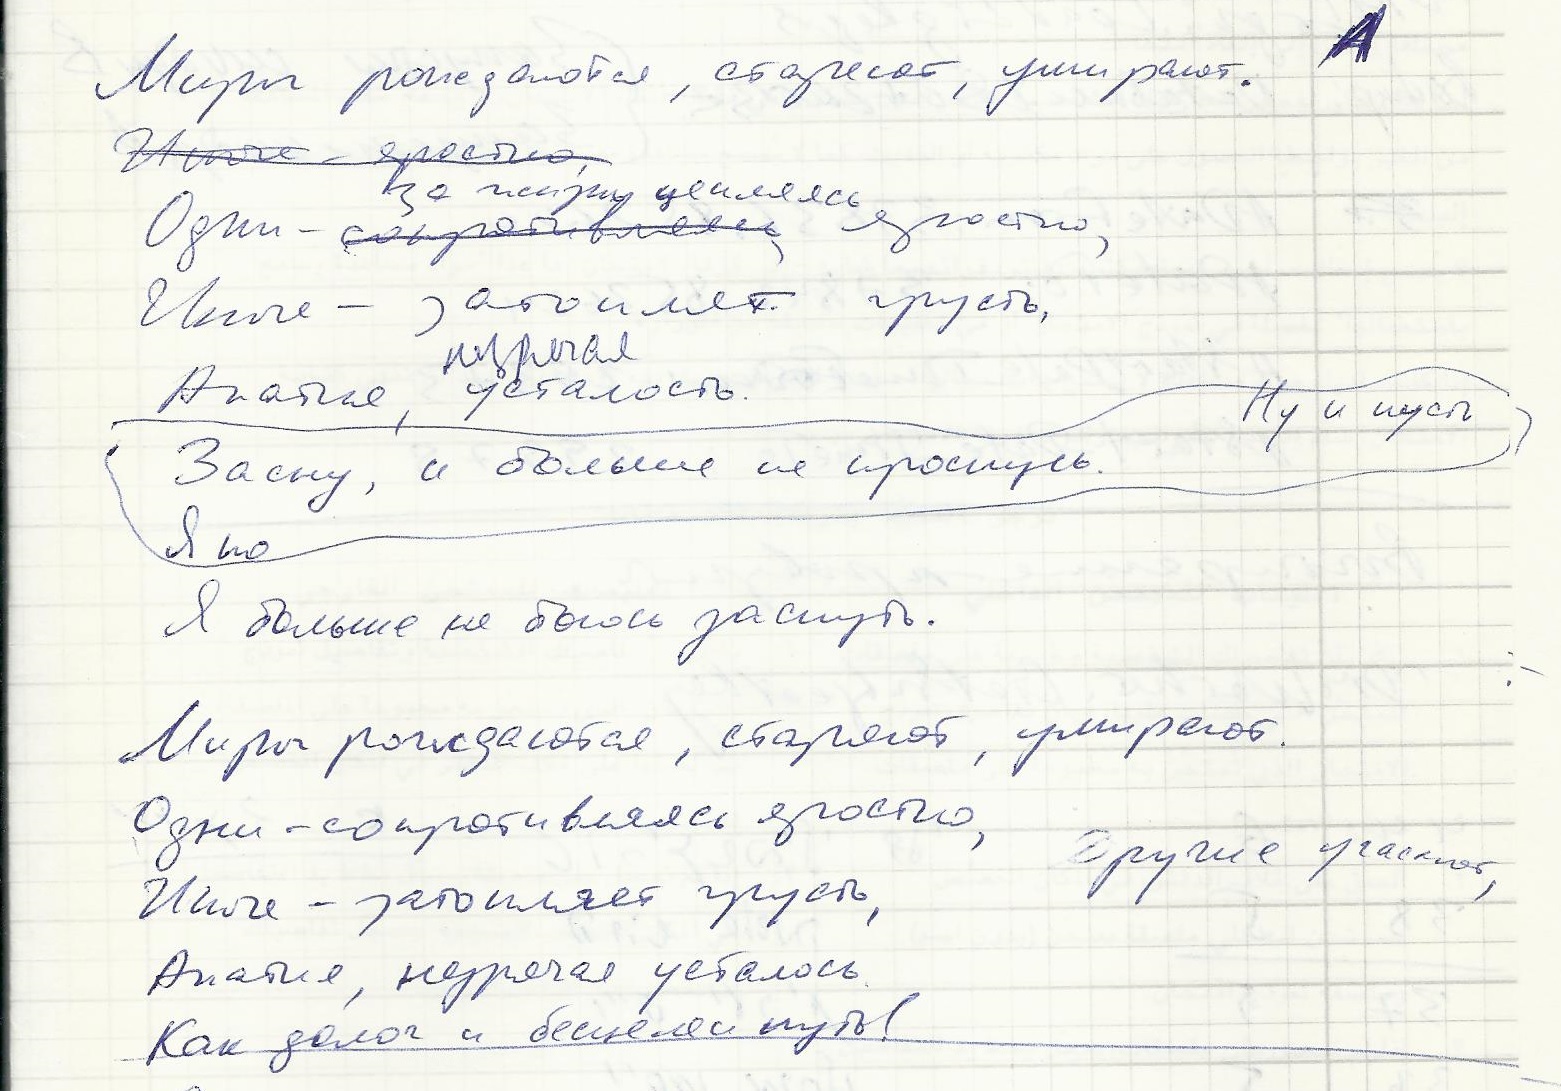 А
Миры рождаются, стареют, умирают.
Иные – яростно,
за жизнь цепляясь
Одни – сопротивляясь, яростно,
Иные – затопляет грусть,
незрячая
Апатия, усталость.
Ну и пусть
Засну, и больше не проснусь.
Я но
Я больше не боюсь заснуть.
Миры рождаются, стареют, умирают.
Одни – сопротивляясь яростно,
Другие угасают,
Иные – затопляет грусть,
Апатия, незрячая усталось.
Как долог и бесцелен путь!